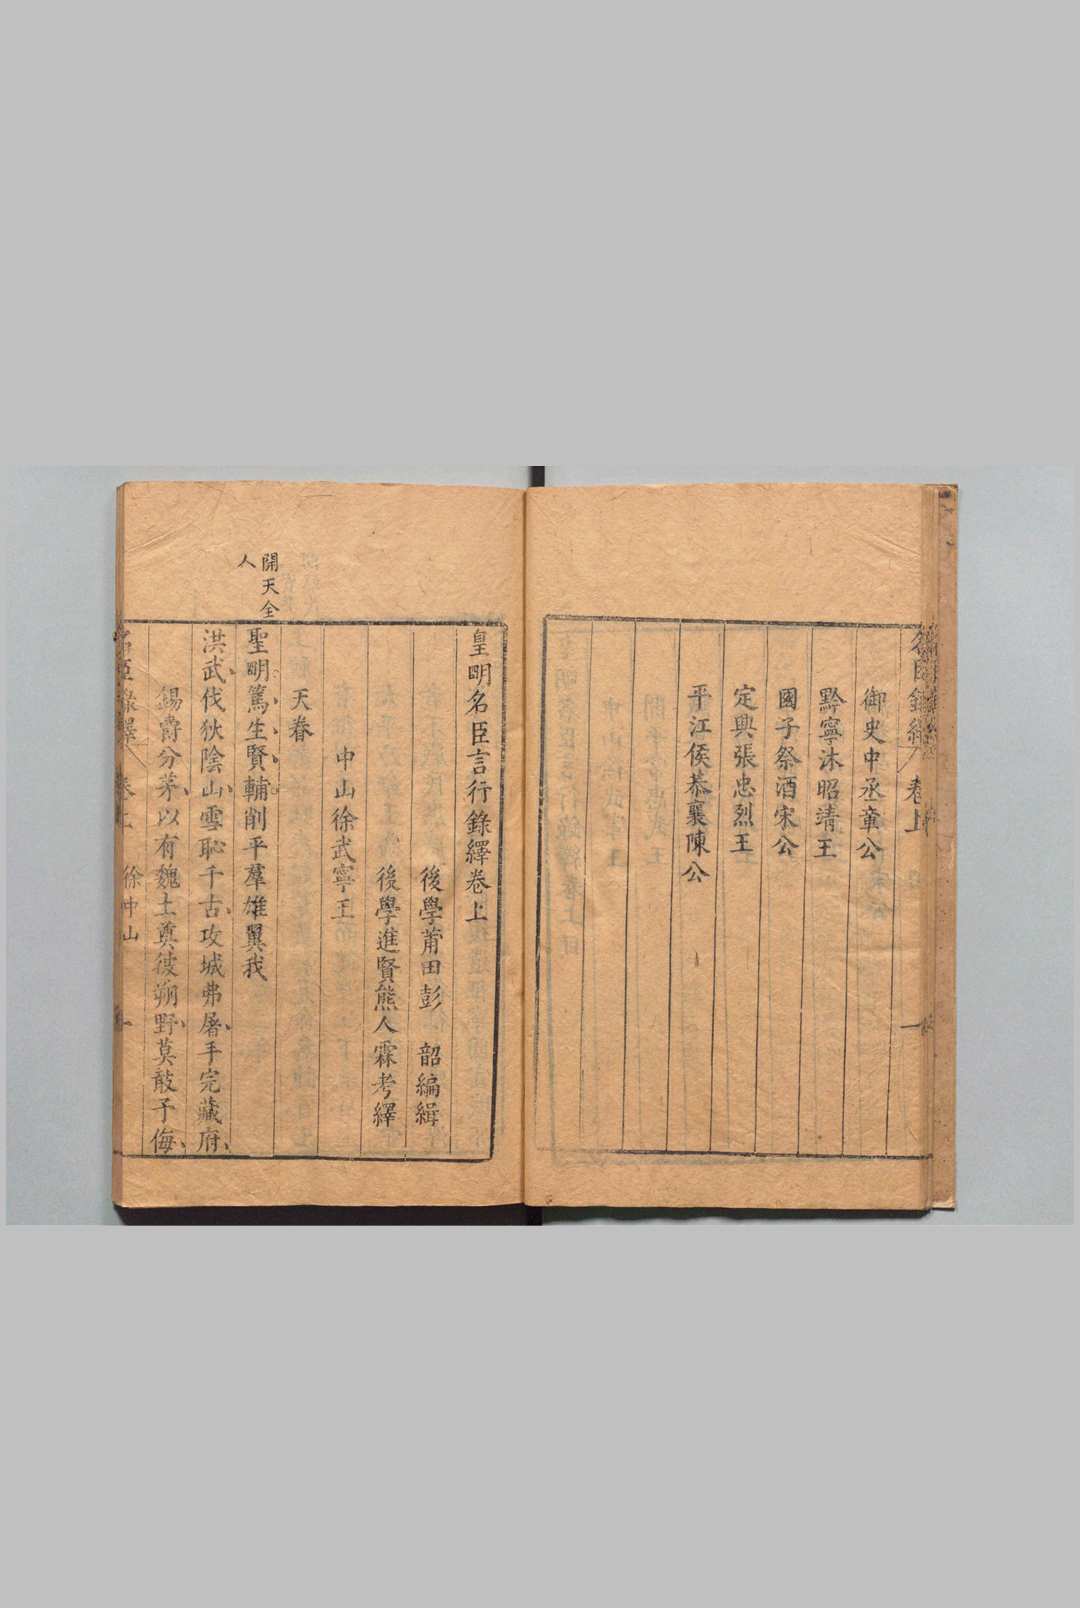 名臣錄繹 卷上 一
御史中丞章公
黔寧沐昭靖王
國子祭酒宋公
定興張忠烈王
平江侯恭襄陳公
皇明名臣言行錄繹卷上
後學莆田彭 韶編緝
後學進賢熊人霖考繹
中山徐武寧王
天眷
開天全
人
聖明篤生賢輔削平羣雄翼我
洪武伐狄陰山雪恥千古攻城弗屠手完藏府
錫爵分茅以有魏土奠彼朔野莫敢予侮
名臣錄繹 卷上 徐中山 一